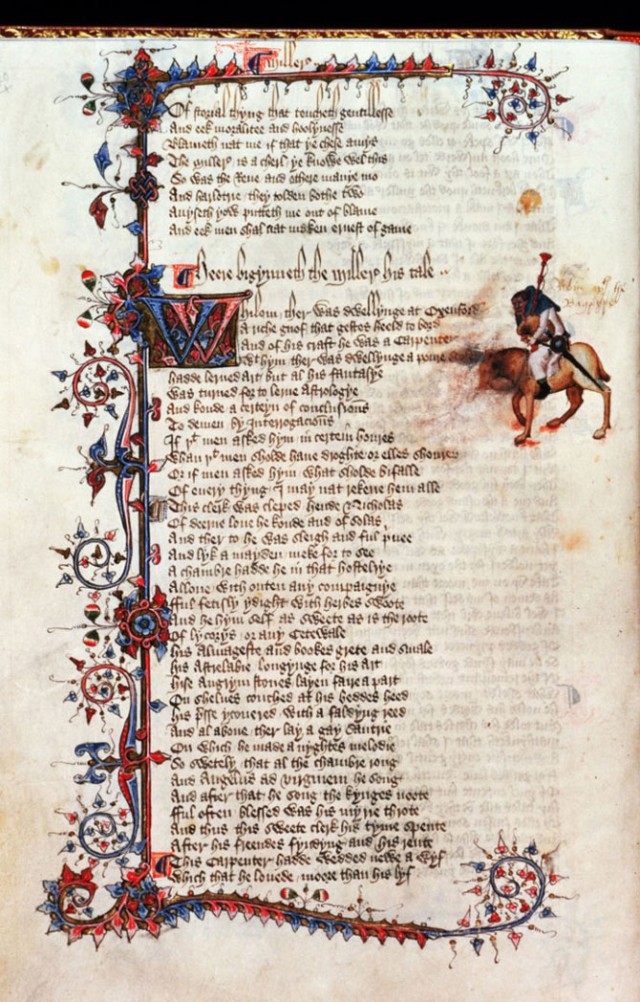 Miller
Of storial thyng that toucheth gentillesse
And eek moralitee and hoolynesse
Blameth nat me if that ye chese amys
The Miller is a cherl ye knowe wel this
So was the Reue and othere manye mo
And harlotrie they tolden bothe two
Auyseth yow putteth me out of blame
And eek men shal nat maken ernest of game
Heere bigynneth the Miller his tale
Whilom ther was dwellynge at Oxenford
A riche gnof that gestes heeld to bord
And of his craft he was a Carpenter
With hym ther was dwellynge a poure
hadde lerned art but al his fantasye
Was turned for to lerne Astrologye
And koude a certeyn of conclusions
To demen by Interrogacions
If þt men asked hym in certein houres
Whan þt men sholde haue droghte or elles shoures
Or if men asked hym what sholde bifalle
Of euery thyng I may nat rekene hem alle
This clerk was cleped hende Nicholas
Of deerne loue he koude and of solas
And ther to he was sleigh and ful priuee
And lyk a mayden meke for to see
A chambre hadde he in that hostelrye
Allone with outen any compaignye
fful fetisly ydight with herbes swoote
And he hym self as sweete as is the roote
Of lycorys or any Cetewale
his Almageste and bookes grete and smale
his Astrelabie longynge for his art
hise Augrym stones layen faire a part
On shelues couched at his beddes heed
his presse ycouered with a faldyng reed
And al aboue ther lay a gay Sautrie
On which he made a nyghtes melodie
So swetely that al the chambre rong
And Angelus ad virginem he song
And after that he song the kynges noote
fful often blessed was his myrie throte
And thus this sweete clerk his tyme spente
After his freendes fyndyng and his rente
This Carpenter hadde wedded newe a wyf
Which that he louede moore than his lyf